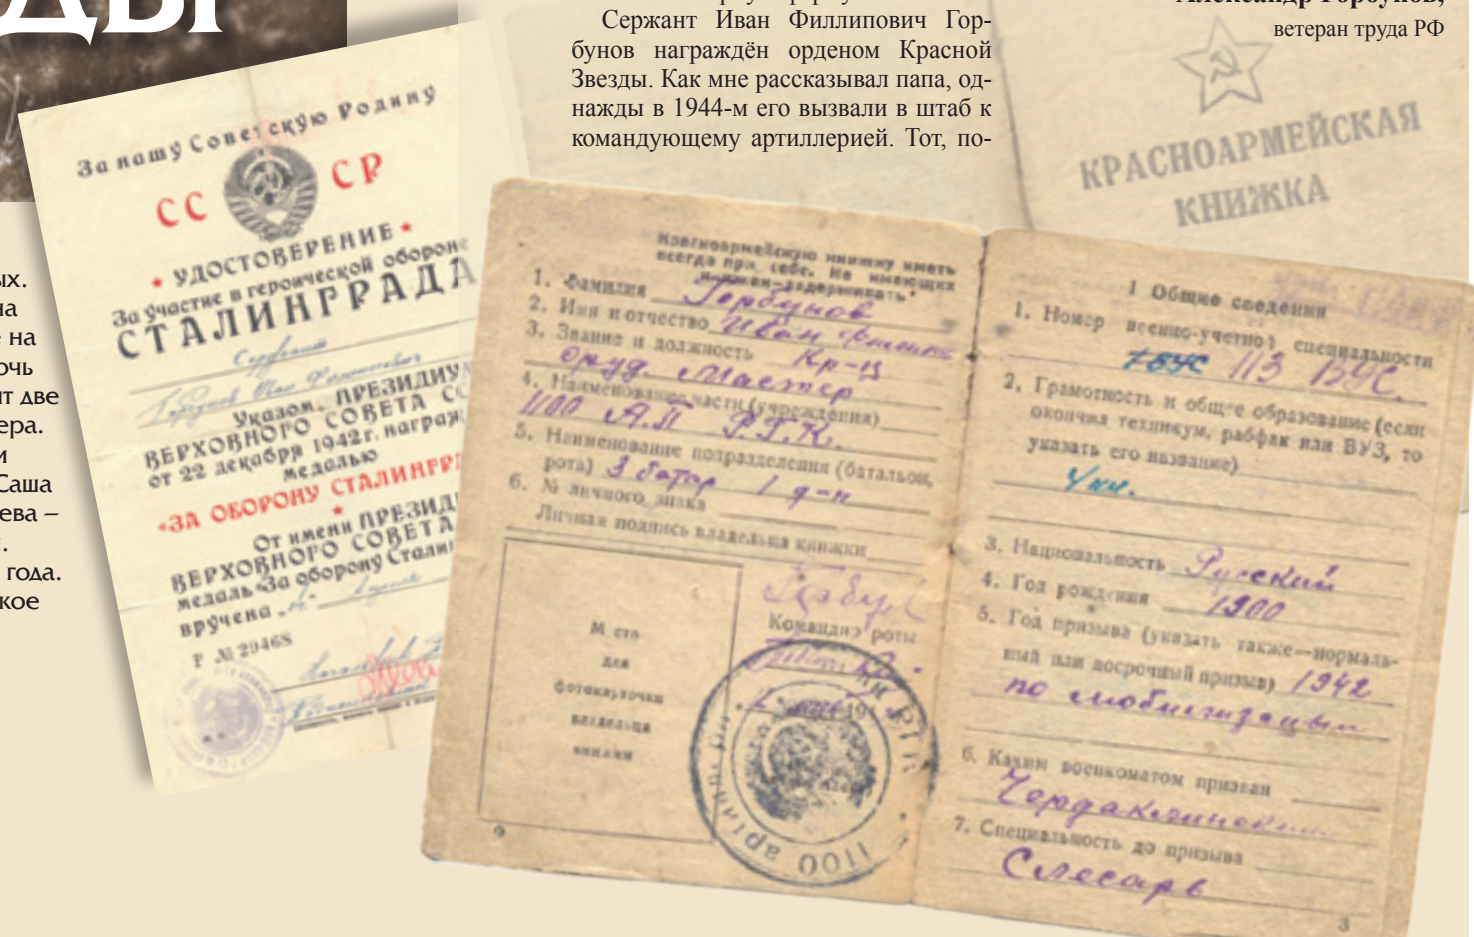 ДЫ
Сержант Иван Филлипович Гор-
бунов награждён орденом Красной
Звезды. Как мне рассказывал папа, од-
нажды в 1944-м его вызвали в штаб к
командующему артиллерией. Тот, по-
Александр Горбунов,
ветеран труда РФ
КРАСНОАРМЕЙСКАЯ
КНИЖКА
ых.
на
е на
очь
ит две
ера.
и
Саша
ева –
.
года.
кое
За нашу Советскую Родину
СС СР
УДОСТОВЕРЕНИЕ
За участие в героической обороне
СТАЛИНГРАДА
Сержант
Горбунов Иван
Указом ПРЕЗИДИУ
ВЕРХОВНОГО СОВЕТА СС
от 22 декабря 1942 г. награж
медалью
«ЗА ОБОРОНУ СТАЛИНГР
От имени ПРЕЗИД
ВЕРХОВНОГО СОВЕТА
медаль «За оборону Сталин
вручена
Р № 29468
Красноармейскую книжку иметь
всегда при себе. Не имеющих
книжек–задерживать
1. Фамилия Горбунов
2. Имя и отчество Иван
3. Звание и должность Кр-ц
оруд. мастер
4. Наименование части (учреждения)
1100 А.П Р.Г.К.
5. Наименование подразделения (батальон,
рота) 3 батар 1 д-н
6. № личного знака
Личная подпись владельца книжки
Командир роты
Место
для
фотокарточки
владельца
книжки
1100
I Общие сведения
1. Номер военно-учетной специальности
113 ВУС.
2. Грамотность и общее образование (если
окончил техникум, рабфак или ВУЗ, то
указать его название)
4 кл.
3. Национальность Русский
4. Год рождения 1900
5. Год призыва (указать также—нормаль-
ный или досрочный призыв) 1942
по мобилизации
6. Каким военкоматом призван
7. Специальность до призыва
Слесарь
3